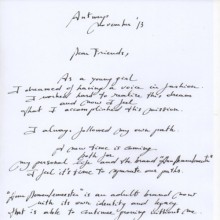 Antwerp
November '13
Dear Friends,
As a young girl
I dreamed of having a voice in fashion.
I worked hard to realize this dream
and now I feel
that I accomplished this mission.
I always followed my own path.
A new time is coming
both for
my personal life and the brand "Ann Demeulemeester"
I feel it's time to separate our paths.
"Ann Demeulemeester" is an adult brand now
with its own identity and legacy
that is able to continue growing without me.